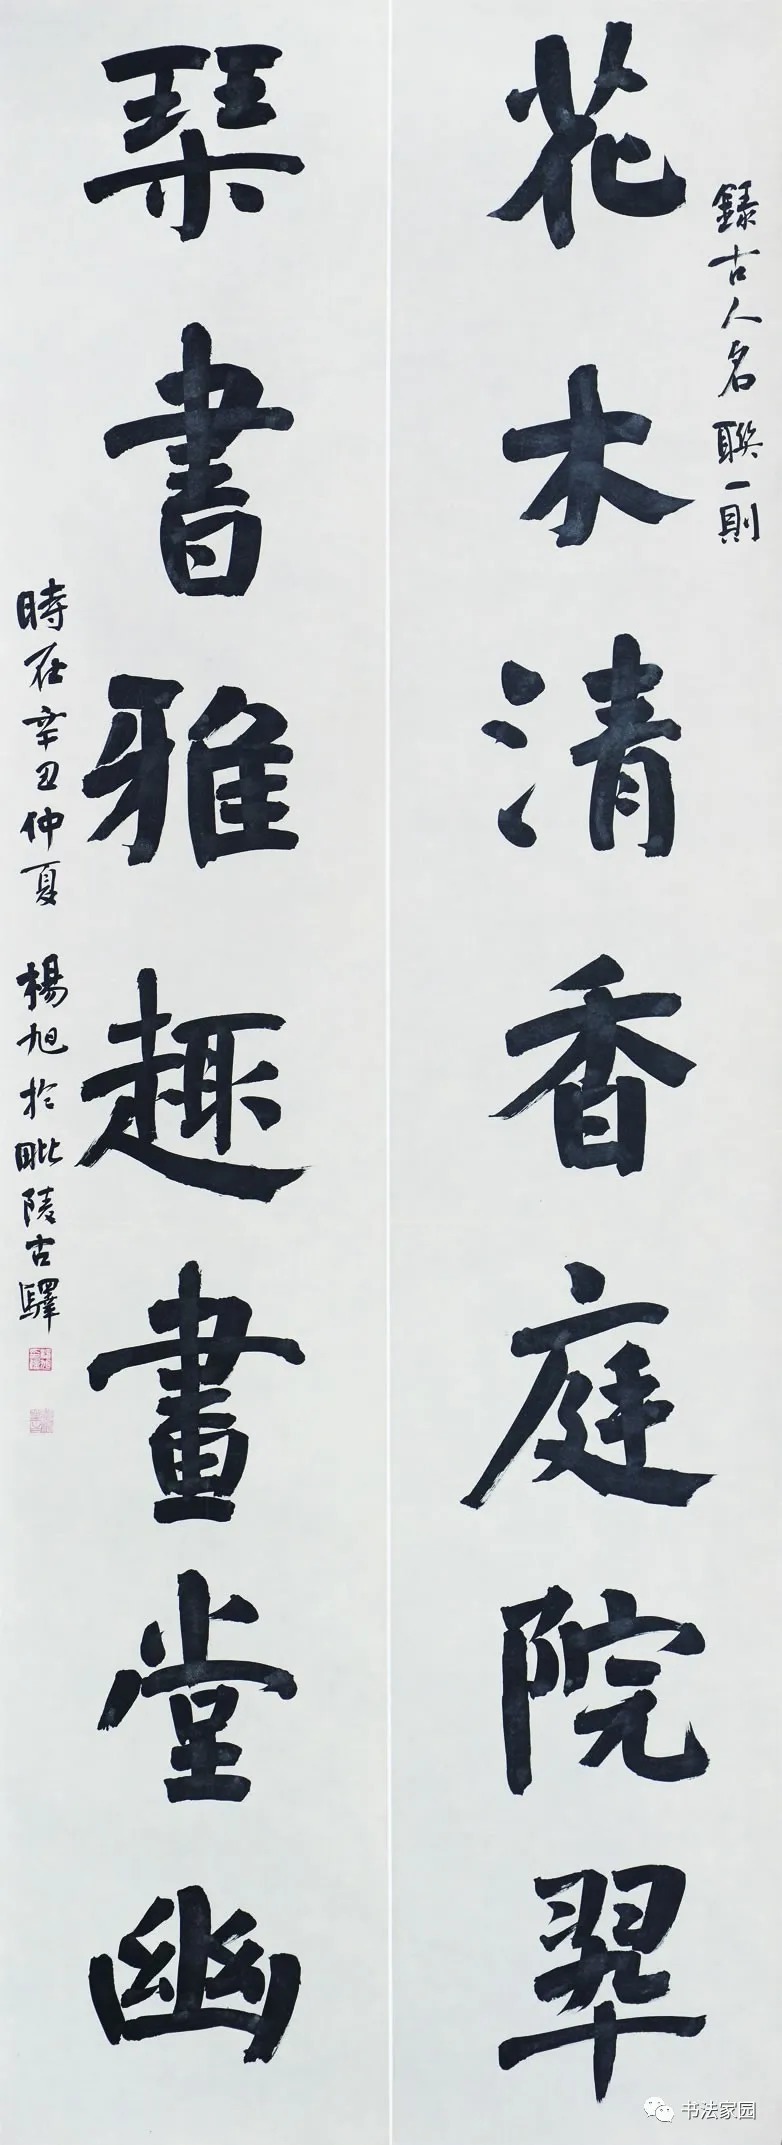 錄古人名聯一則
花木清香庭院翠
琹書雅趣畫堂幽
時在辛丑仲夏 楊旭於毗陵古驛
书法家园